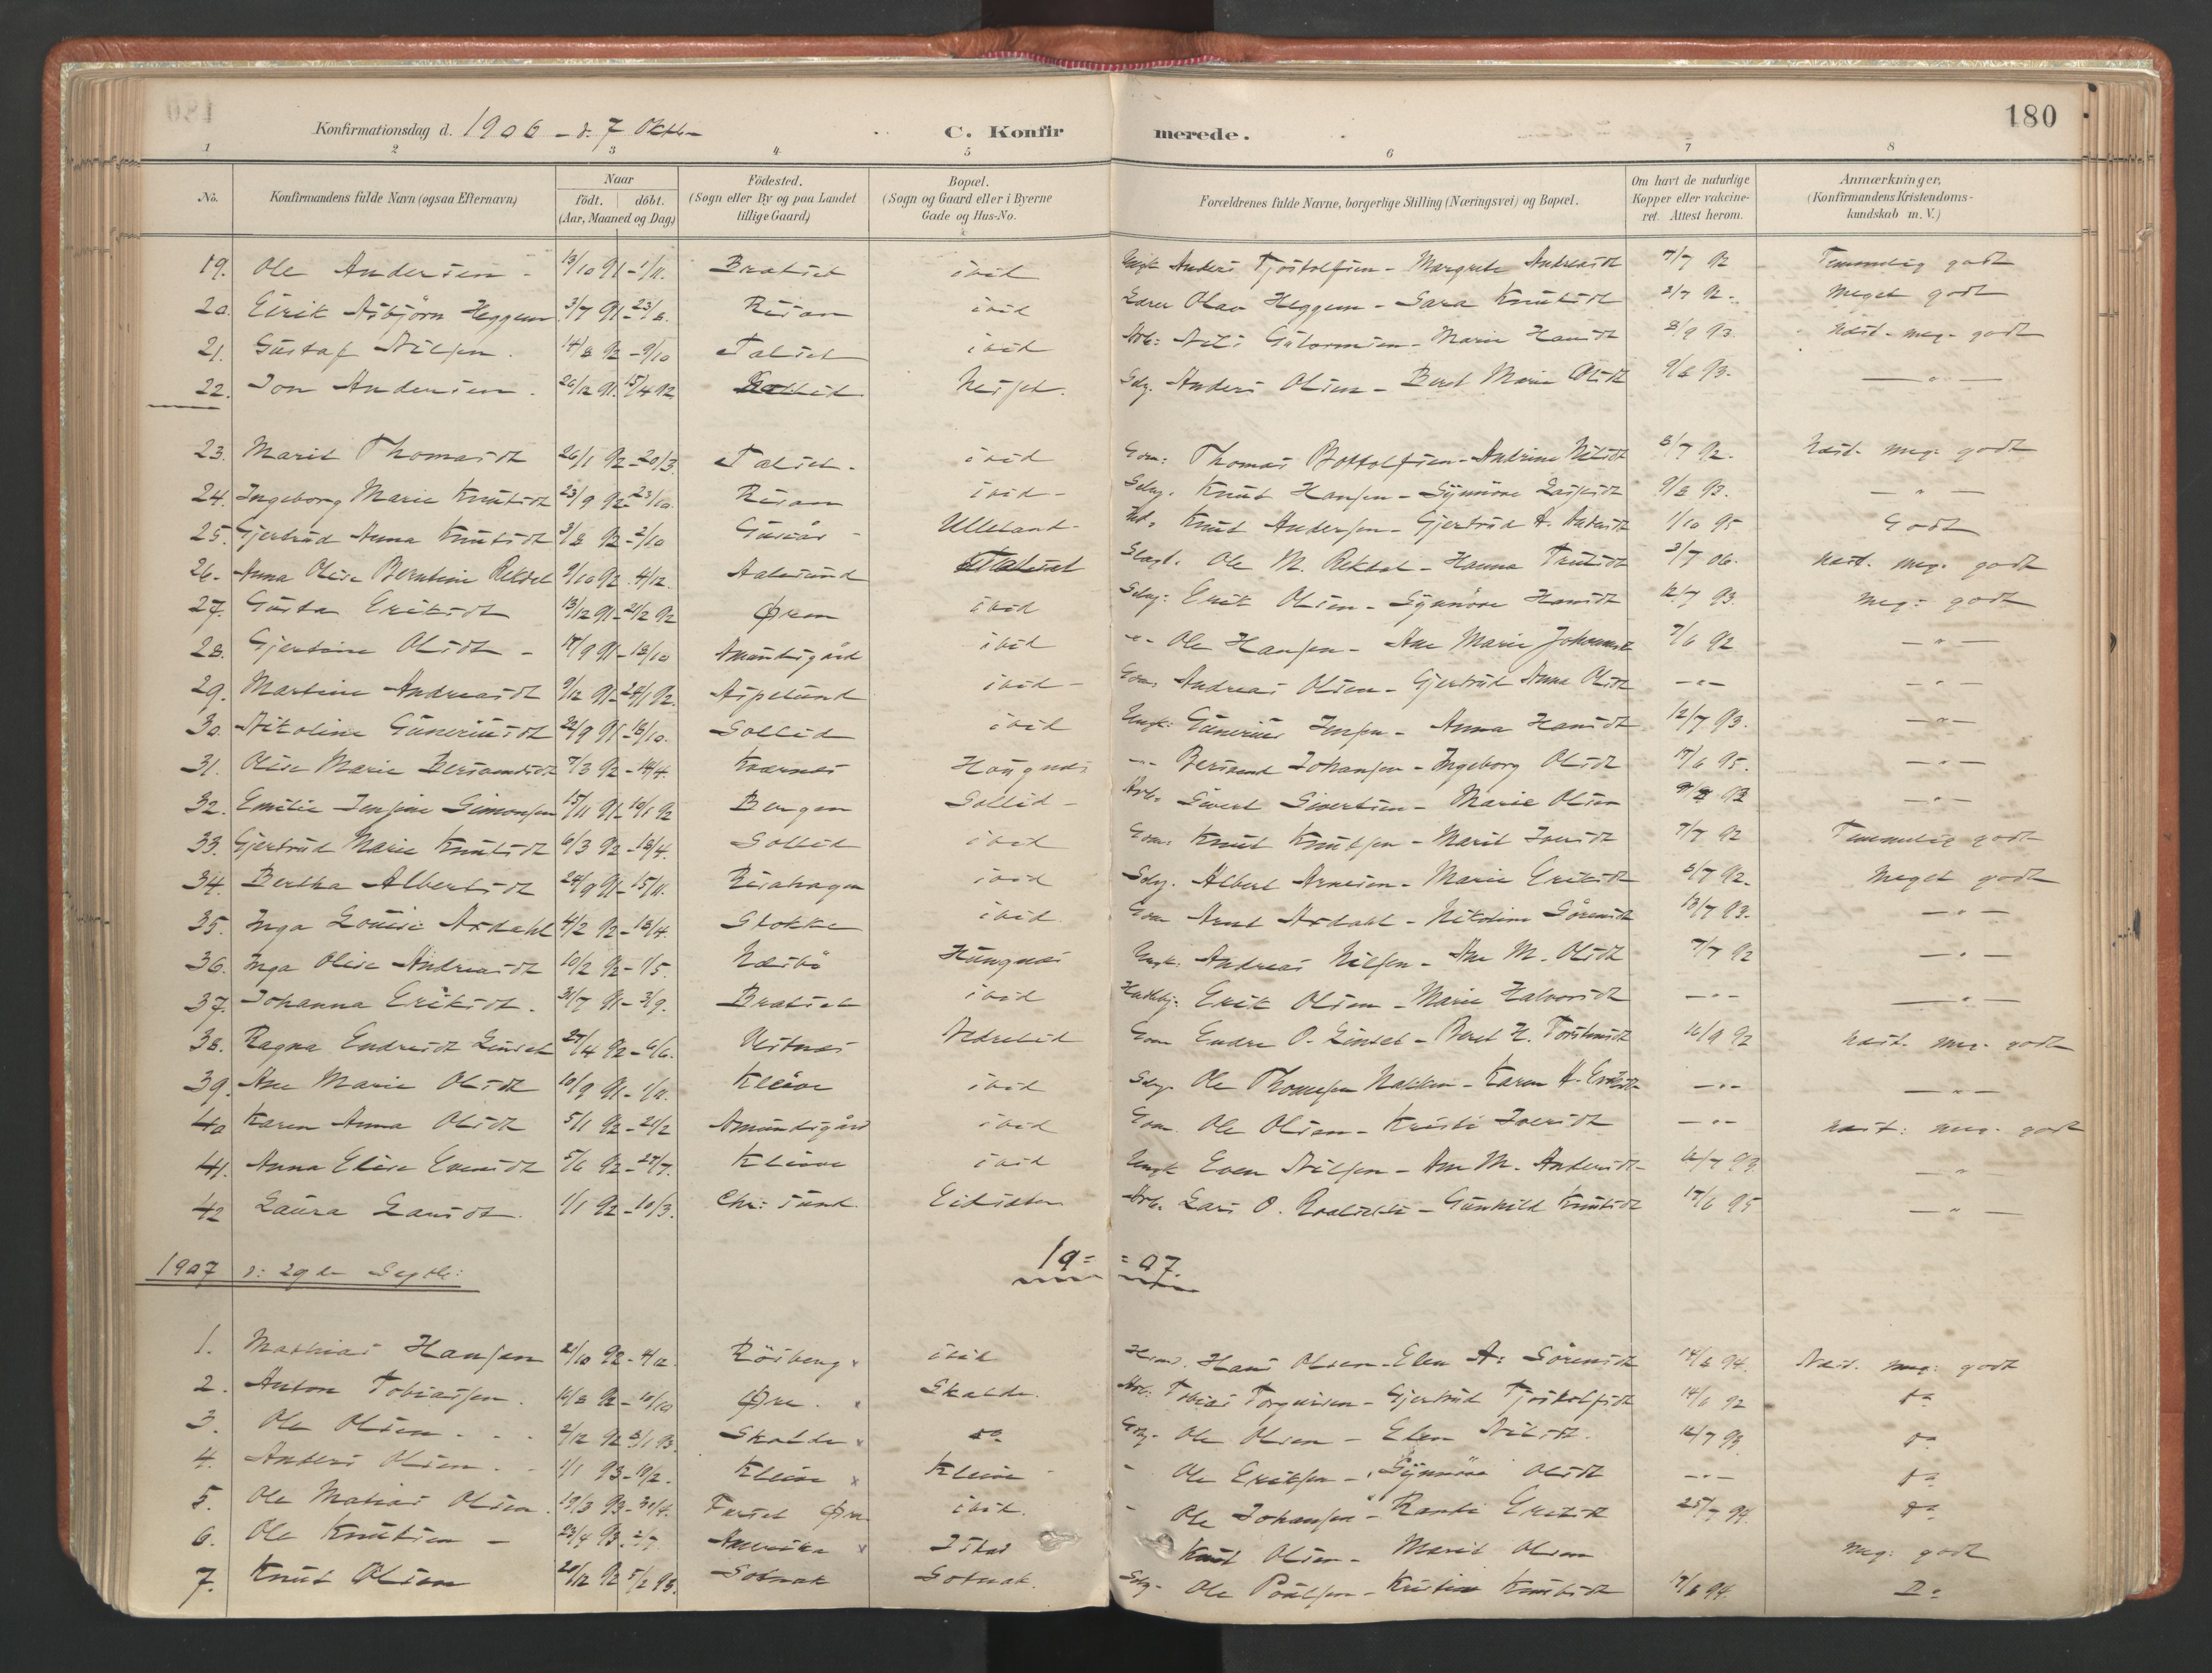 180
Konfirmationsdag d. 1906 - d: 7 Oktb.
C. Konfirmerede.
1 2 3 4 5 6 7 8
No. Konfirmandens fulde Navn (ogsaa Efternavn) Naar födt. döbt. (Aar, Maaned og Dag) Födested. (Sogn eller By og paa Landet tillige Gaard) Bopæl. (Sogn og Gaard eller i Byerne Gade og Hus-No. Forældrenes fulde Navne, borgerlige Stilling (Næringsvei) og Bopæl. Om havt de naturlige Kopper eller vakcineret. Attest herom. Anmærkninger, (Konfirmandens Kristendomskundskab m. V.)
19. Ole Andersen - 13/10 91 - 1/11. Bratset ibid Anders Tjostolfsen - Margrete Andreasdt 7/7 92 Temmelig godt
20. Eirik Asbjörn Heggem 3/7 91 - 23/8. Reisan ibid Lærer Olav Heggem - Sara Knutsdt 2/7 92. Meget godt
21. Gustaf Nilsen. 14/8 92 - 9/10 Talset ibid Arb: Nils Guttormsen - Marie Hansdt 8/9 93 Næst. meg. godt
22. Jon Andersen. 26/12 91. 15/4 92 Neiset. Selvg. Anders Olsen - Berit Marie Olsdt 9/8 93. — " —
23. Marit Thomasdt 26/1 92 - 20/3. Talset. ibid Gom: Thomas Bottolfsen - Andrine Nilsdt 8/7 92. Næst. meg. godt
24. Ingeborg Marie Knutsdt 23/9 92 - 23/10. Reisan ibid - Selvg. Knut Hansen - Synnöve Lassesdt 9/8 93. — " —
25. Gjertrud Anna Knutsdt 3/8 92 - 2/10 Gusiås - Ulleland - Knut Andersen - Gjertrud A. 1/10 95 Godt
26. Anna Olise Berntine Rekdal 9/10 92. 4/12. Aalesund Talset Slagt. Ole M. Rekdal - Hanna Knutsdt 3/7 06. Næst. meg. godt
27. Gusta Eriksdt 13/12 91 - 21/2 92 Øren ibid Selvg: Erik Olsen - Synnöve Hansdt 12/7 93. Meg: godt
28. Gjertine Olsdt - 17/9 91 - 18/10 Amundsgård ibid -"- Ole Hansen - Ane Marie Johannsdt 7/6 92 — " —
29. Martine Andreasdt 9/12 91 - 24/1 92. Aspelund ibid - Gom, Andreas Olsen - Gjertrud Anna Olsdt -"- — " —
30. Nikoline Guneriusdt 22/9 91 - 18/10. Sollid ibid Ungk: Gunerius Jensen - Anna Hansdt 12/7 93. — " —
31. Olise Marie Bersvendsdt 7/3 92 - 14/4. Kvernes Haugnes -"- Bersvend Johansen - Ingeborg Olsdt 17/6 95. — " —
32. Emilie Jensine Simonsen 15/11 91 - 10/1 92 Bergen Sollid - Arb. Sivert Sivertsen - Marie Olsen — " —
33. Gjertrud Marie Knutsdt 6/3 92 - 18/4. Sollid ibid Gom. Knut Knutsen - Marit Iversdt 7/7 92 Temmelig godt
34. Bertha Albertsdt 24/9 91 - 15/11. Reisahagen ibid Selvg. Albert Arnesen - Marie Eriksdt 8/7 92. Meget godt
35. Inga Louise Årdahl 4/2 92 - 18/4. Stokke ibid Gom Arnt Årdahl - Nikoline Sörensdt 13/7 93. — " —
36. Inga Olise Andreasdt 10/2 92 - 1/5. Næsbö Haugnes Ungk. Andreas Nilsen - Ane M. Olsdt 7/7 92 — " —
37. Johanna Eriksdt. 31/7 91 - 3/9. Bratset ibid Erik Olsen - Marie Halvorsdt -"- — " —
38. Ragna Endresdt Linset 27/4 92 - 6/6. Vestnes Nedrelid Gom Endre O. Linset - Beret H. Torstensdt 16/9 92 Næst. meg. godt
39. Ane Marie Olsdt 10/9 91 - 1/11. Kleive ibid Selvg. Ole Thomesen Nakken - Karen H. Eriksdt -"- — " —
40 Karen Anna Olsdt 5/1 92 - 21/2 Amundsgård ibid Gom. Ole Olsen - Kristi Iversdt -"- Næst: meg. godt
41. Anna Elise Evensdt 5/6 92 - 27/7. Kleive ibid Ungk Even Nilsen - Ane M. Andersdt - 12/7 93 — " —
42 Laura Larsdt. 1/1 92 - 10/3. Chr: sund. Eidsören Arb. Lars O. - Gunhild Knutsdt 17/6 95 — " —
1907 d: 29de Septb: 19= =07.
1. Mathias Hansen 21/10 92 - 4/12. Rösberg x ibid Hans Olsen - Elen A: Sörensdt 14/8 94. Næst. meg: godt
2. Anton Tobiassen. 16/8 92 - 10/10 Øre. x Skalde. Arb: Tobias Torgersen - Gjertrud Tjostolfsdt 14/6 92 do
3. Ole Olsen - - - 2/12 92 8/1 93. Skalde x do Selvg - Ole Olsen - Elen Nilsdt. 12/7 93 do
4. Anders Olsen. - 1/1 93 - 19/2. Kleive x Kleive - - Ole Eriksen - Synnöve Olsdt -"- do
5. Ole Matias Olsen. 19/3 93 - 30/4. Furset Øre ibid. - Ole Johansen - Randi Eriksdt 25/7 94. do
6. Ole Knutsen - 23/4 93. 2/7. Amerika x Istad Knut Olsen - Marit Olsen Meg: godt
7. Knut Olsen 20/12 92 5/2 93. Sotnak Sotnak. Selvg - Ole Poulsen - Kristine Knutsdt 17/8 94. Do